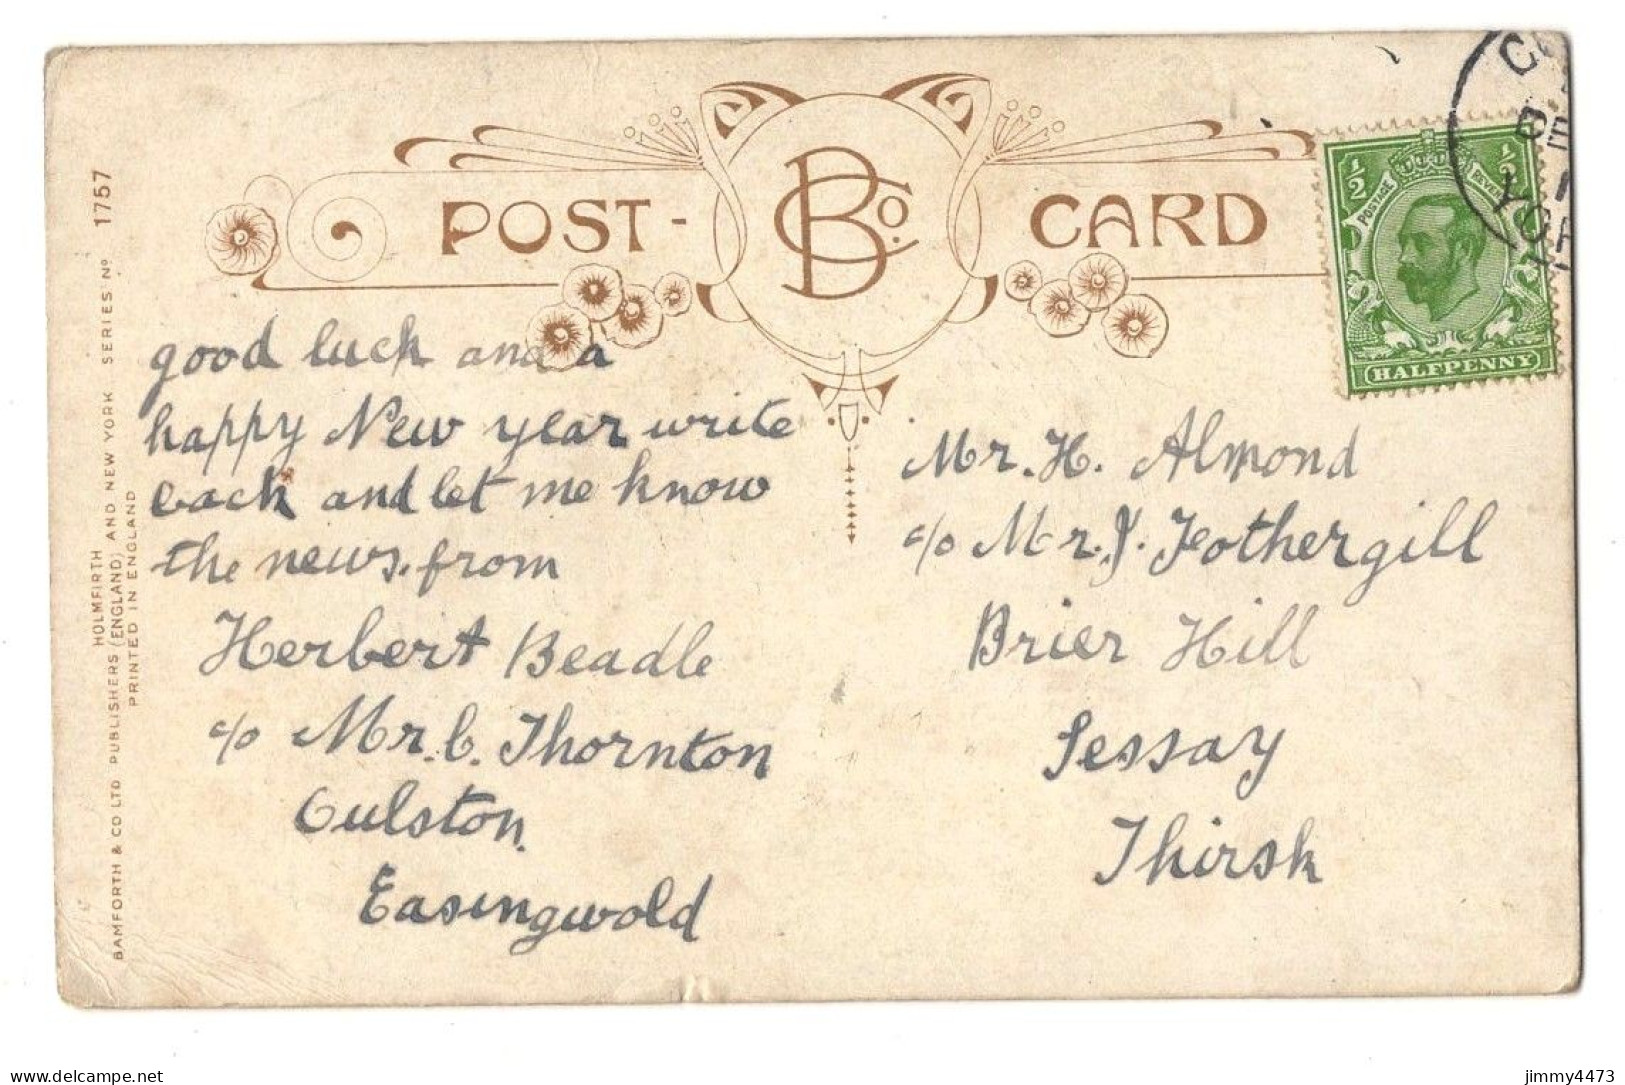 POST - BCo. CARD
1/2 1/2
POSTAGE
HALFPENNY
YOR
good luck and a
happy New year write
back and let me know
the news. from
Herbert Beadle
c/o Mr. C. Thornton
Oulston.
Easingwold
Mr. H. Almond
c/o Mr. J. Fothergill
Brier Hill
Sessay
Thirsk
HOLMFIRTH
BAMFORTH & CO LTD PUBLISHERS (ENGLAND) AND NEW YORK SERIES Nº 1757
PRINTED IN ENGLAND
delcampe.net
jimmy4473